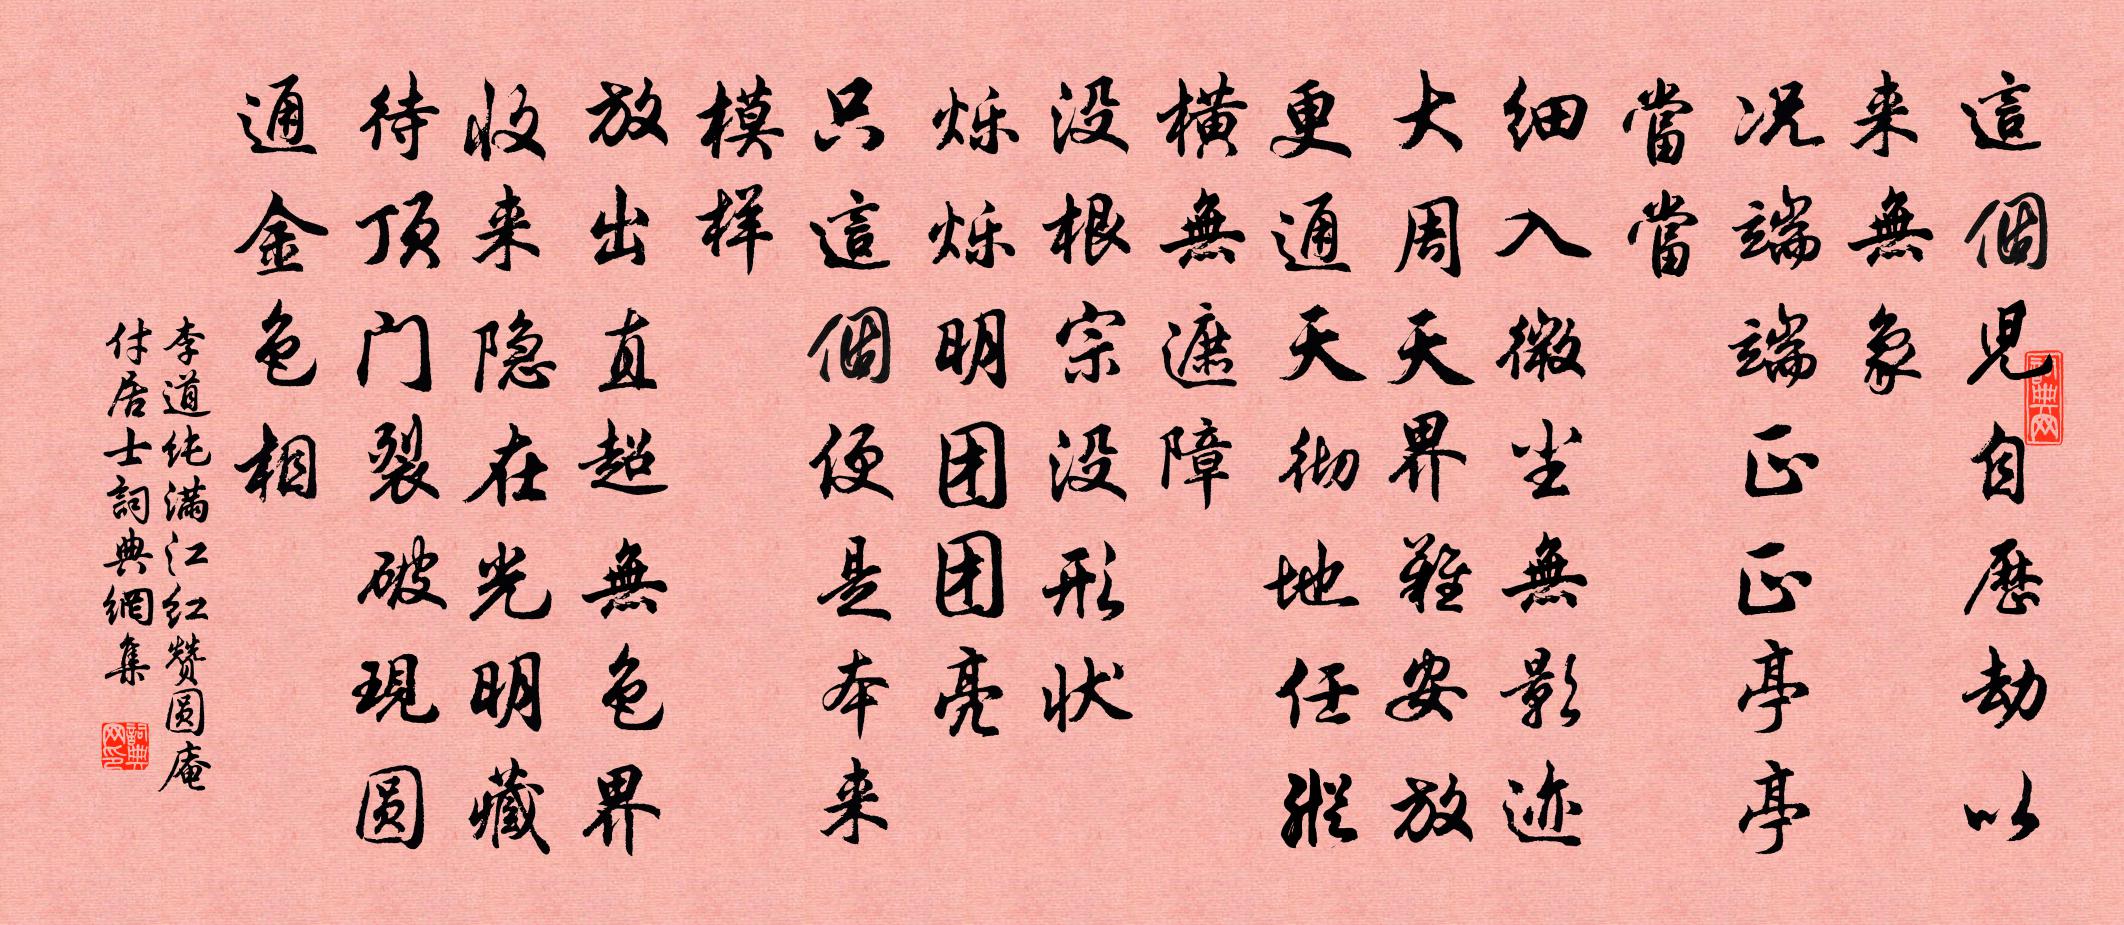 這個児自歷劫以
来無象
况端端正正亭亭
當當
细入微尘無影迹
大周天界難安放
更通天彻地任縱
橫無遮障
没根宗没形状
烁烁明团团亮
只這個便是本来
模样
放出直超無色界
收来隐在光明藏
待顶门裂破現圆
通金色相
李道纯满江红赞圆庵
付居士詞典網集
詞典网
詞典网印